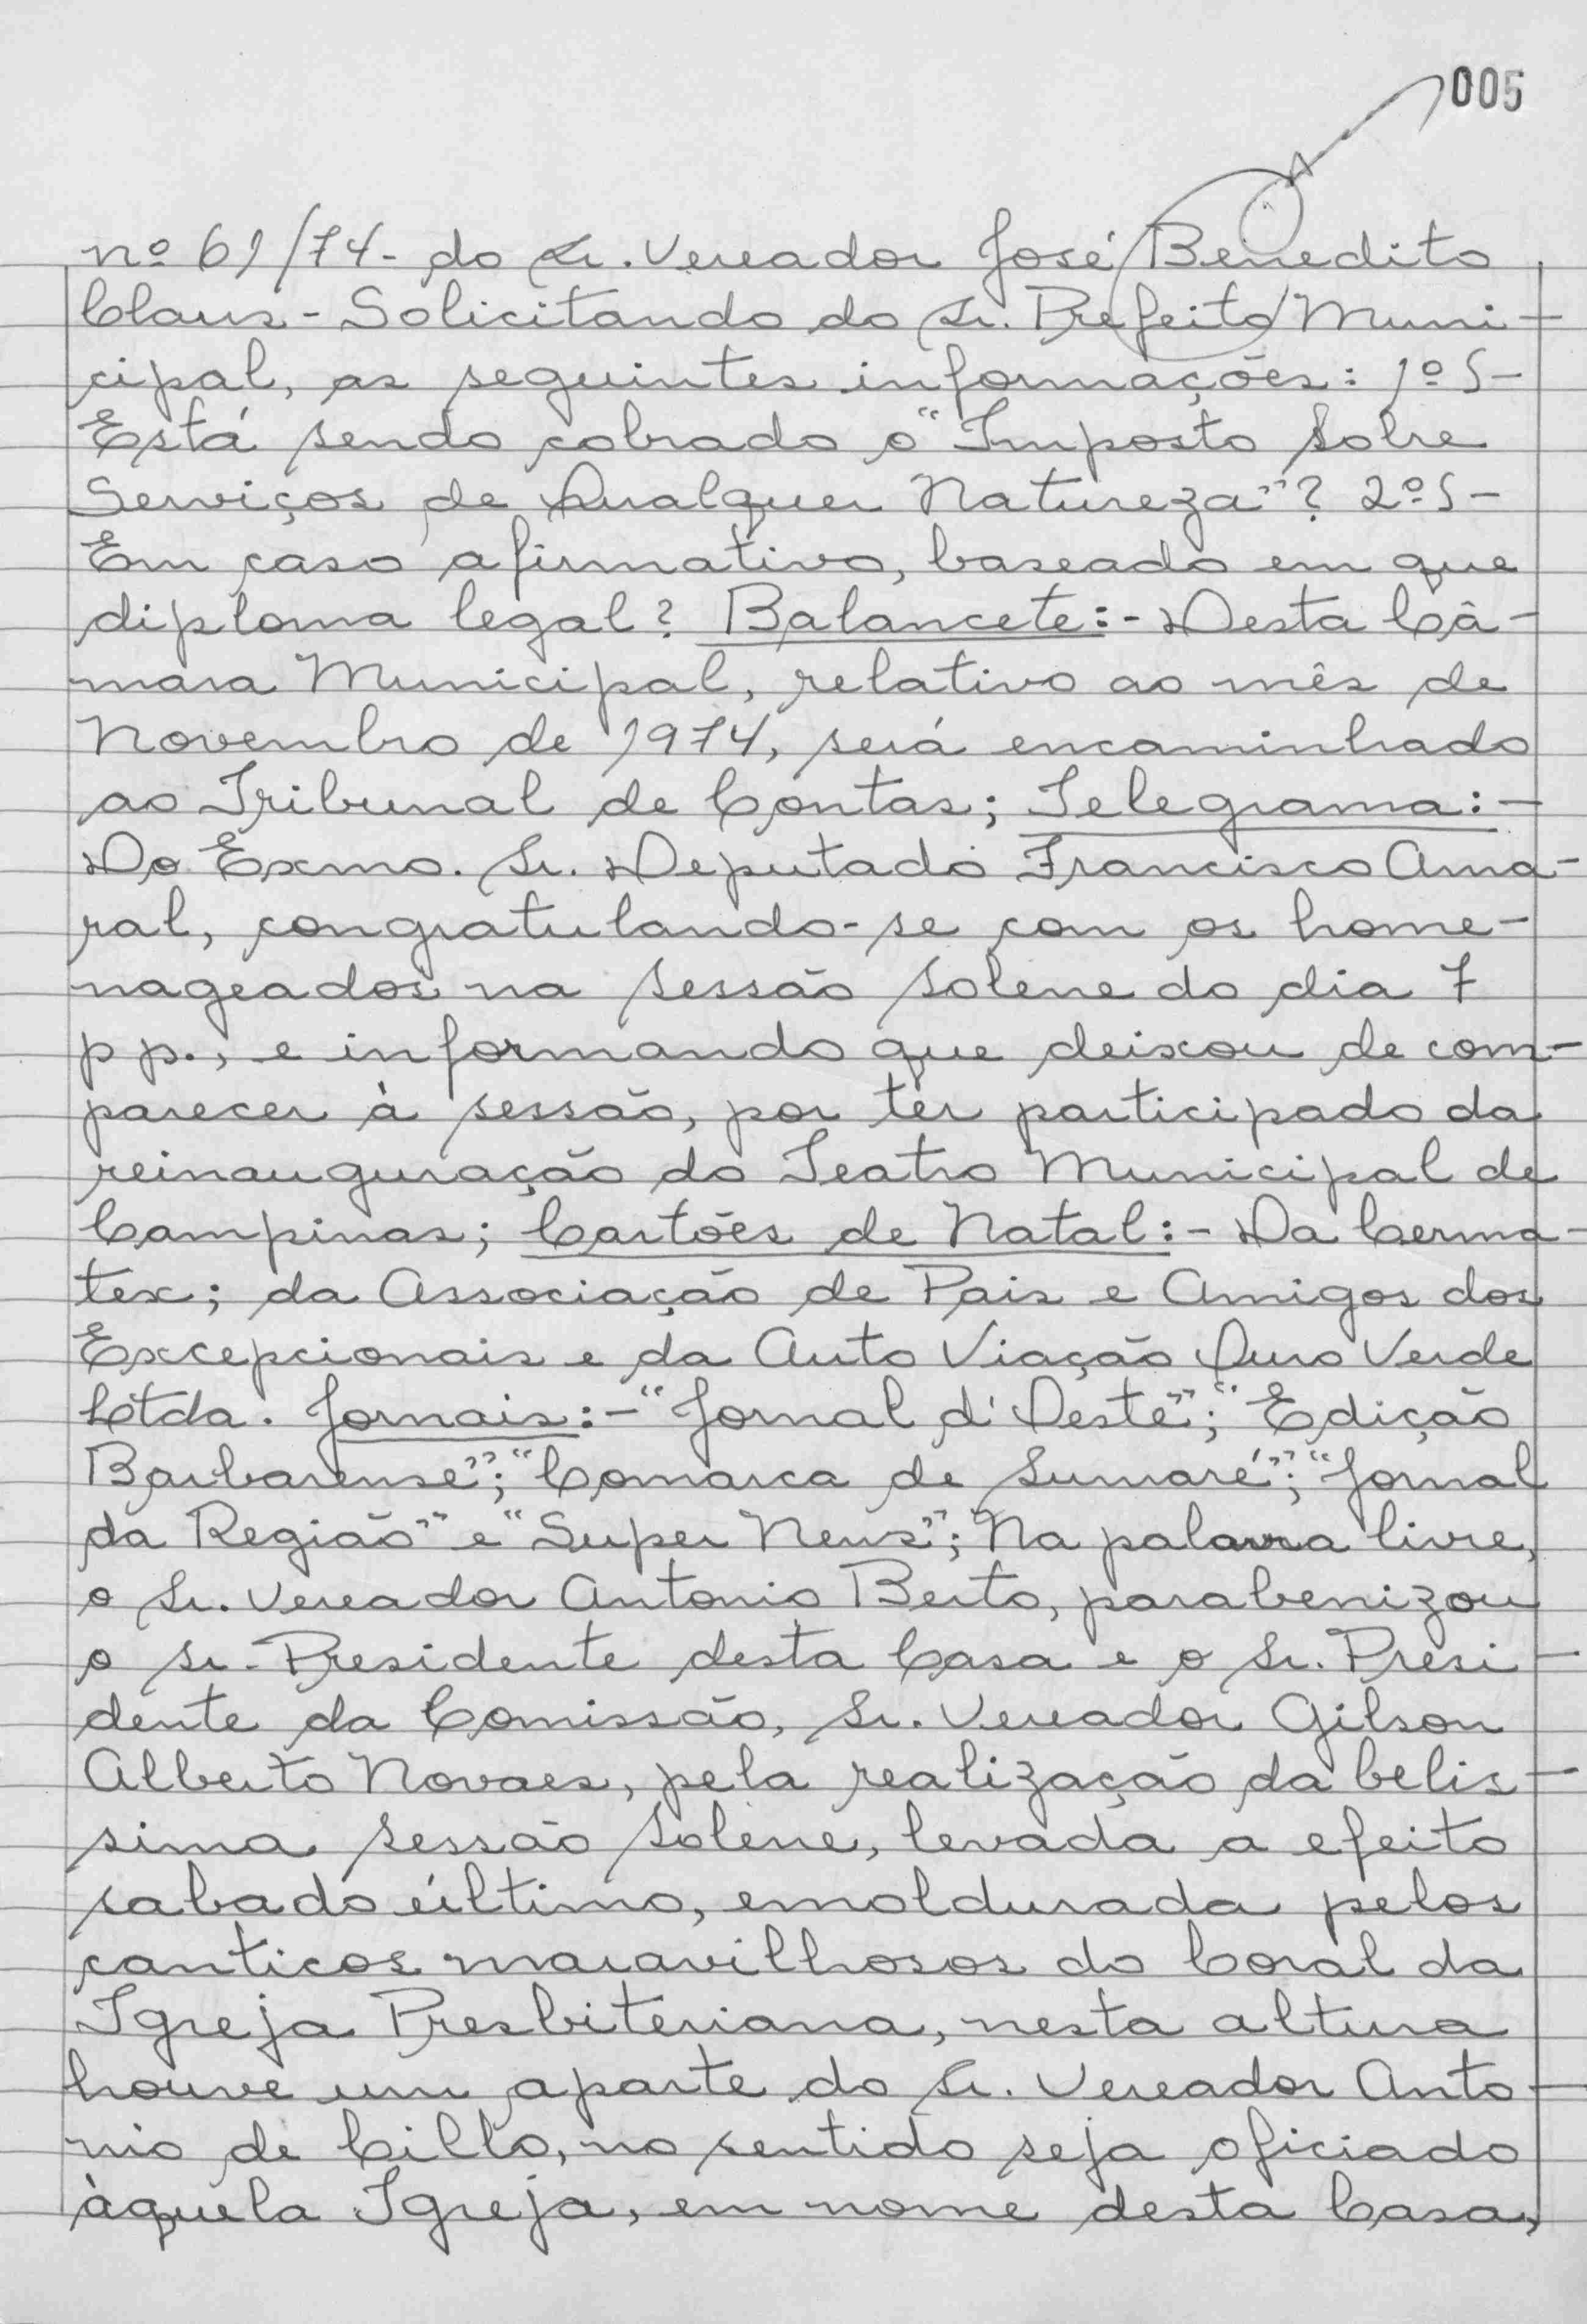 005
nº 61/74- do Sr. Vereador José Benedito
Claus - Solicitando do Sr. Prefeito Muni-
cipal, as seguintes informações: 1º)-
Está sendo cobrado o "Imposto Sobre
Serviços de Qualquer Natureza"? 2º)-
Em caso afirmativo, baseado em que
diploma legal? Balancete:- Desta Câ-
mara Municipal, relativo ao mês de
Novembro de 1974, será encaminhado
ao Tribunal de Contas; Telegrama:-
Do Exmo. Sr. Deputado Francisco Ama-
ral, congratulando-se com os home-
nageados na sessão solene do dia 7
pp., e informando que deixou de com-
parecer à sessão, por ter participado da
reinauguração do Teatro Municipal de
Campinas; Cartões de Natal:- Da Cerma-
tex; da Associação de Pais e Amigos dos
Excepcionais e da Auto Viação Ouro Verde
Ltda. Jornais:- "Jornal d'Oeste"; "Edição
Barbarense"; "Comarca de Sumaré"; "Jornal
da Região" e "Super News"; Na palavra livre,
o Sr. Vereador Antonio Berto, parabenizou
o Sr. Presidente desta Casa e o Sr. Presi-
dente da Comissão, Sr. Vereador Gilson
Alberto Novaes, pela realização da belis-
sima sessão solene, levada a efeito
sabado último, emoldurada pelos
canticos maravilhosos do Coral da
Igreja Presbiteriana, nesta altura
houve um aparte do Sr. Vereador Anto-
nio de Cillo, no sentido seja oficiado
àquela Igreja, em nome desta Casa,